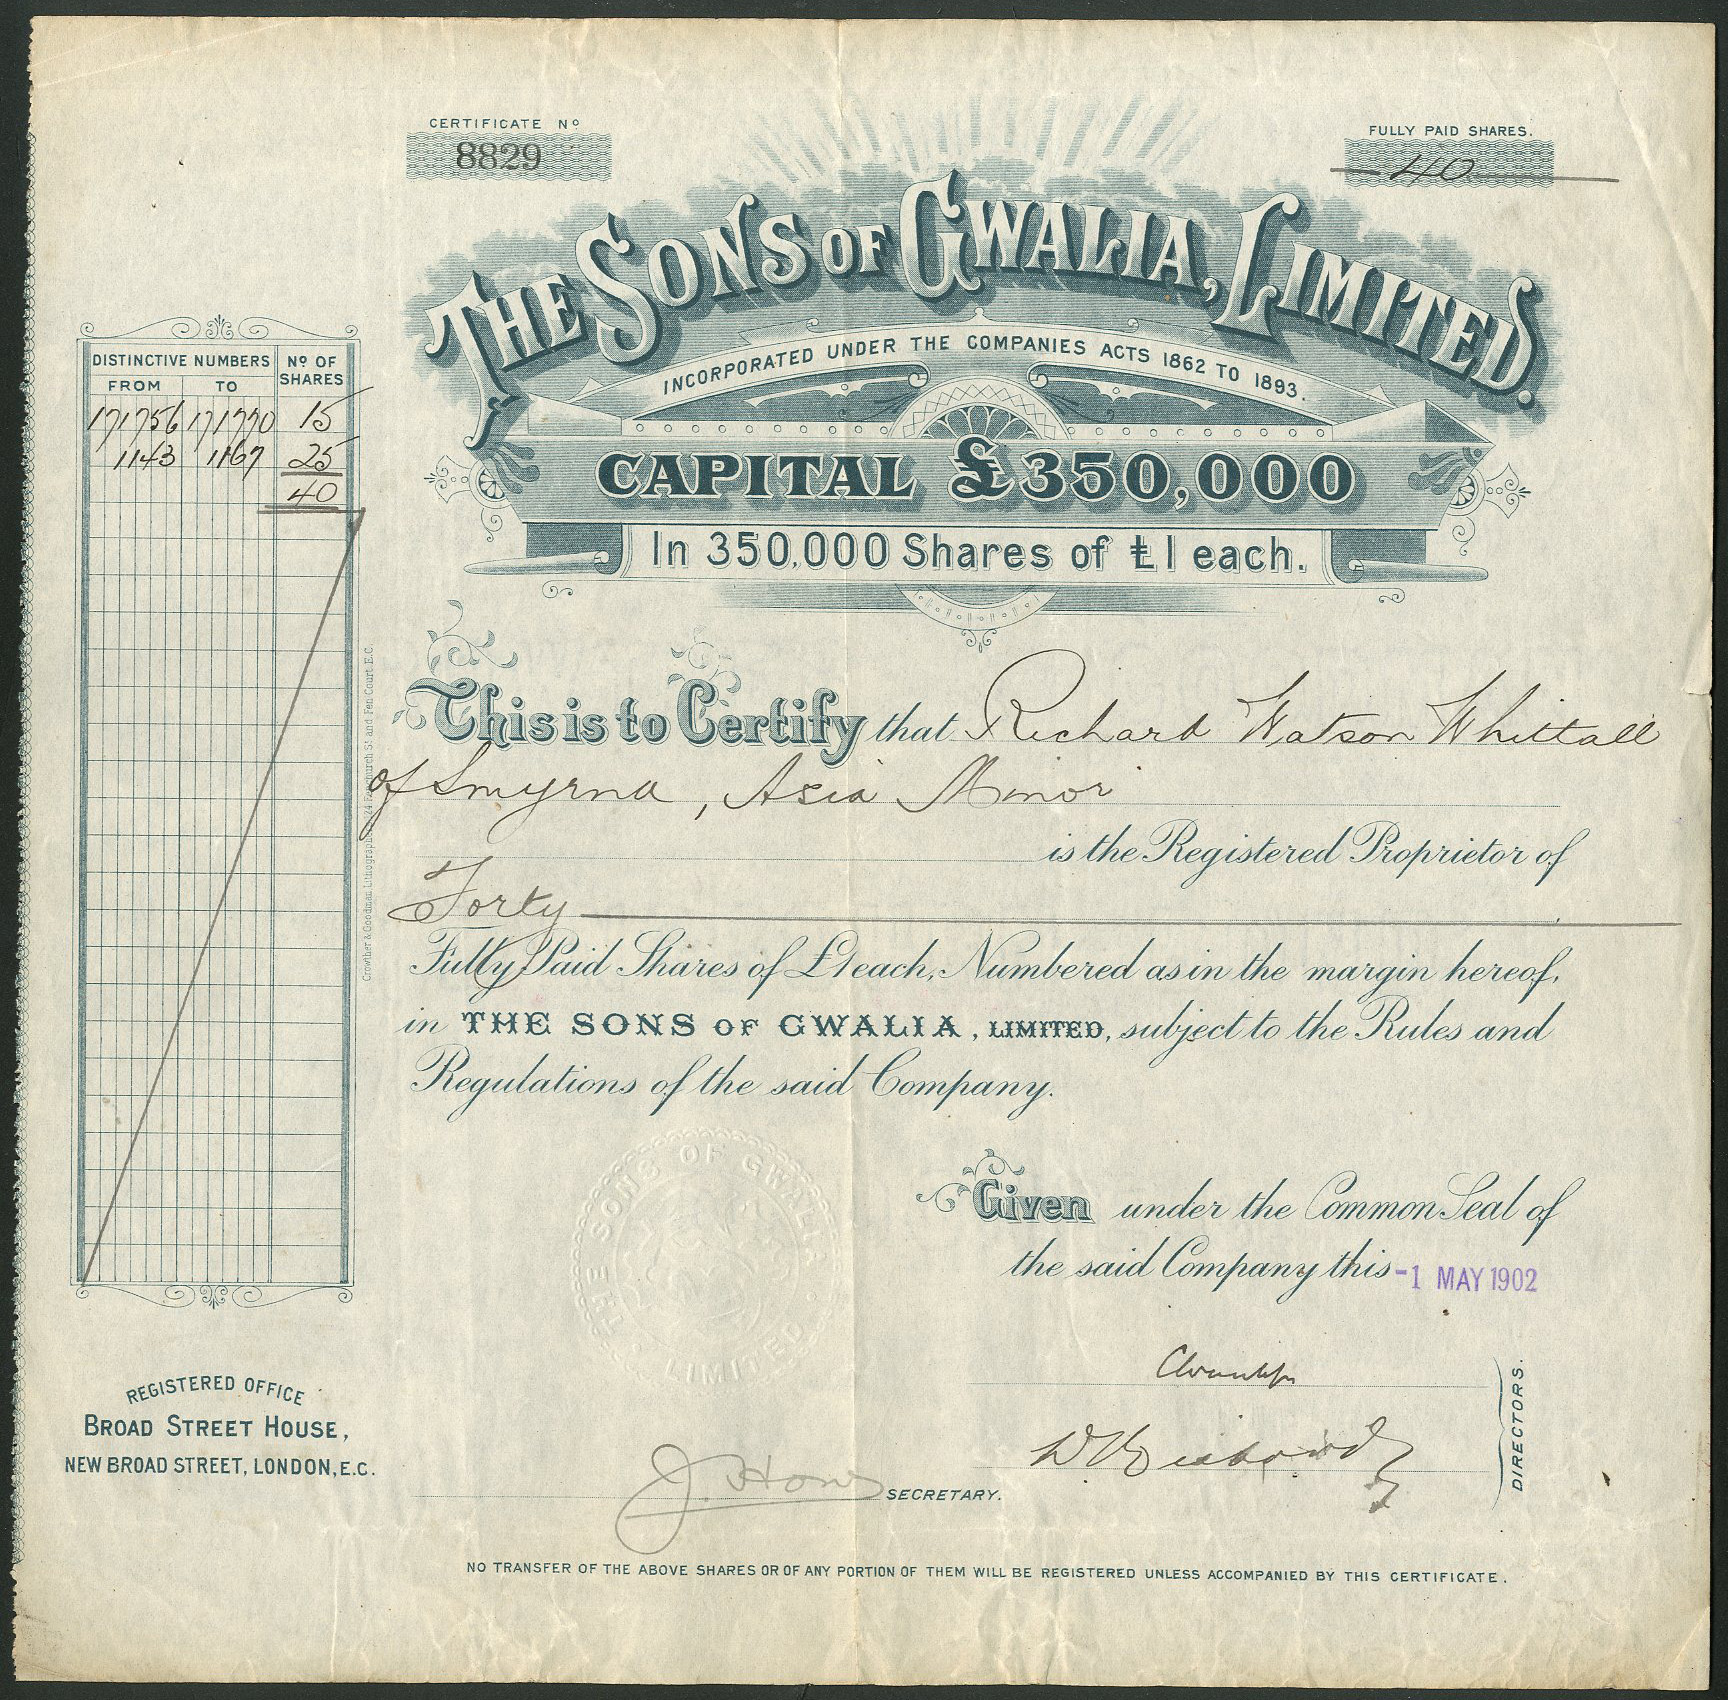 CERTIFICATE No
8829
FULLY PAID SHARES.
40
THE SONS OF GWALIA, LIMITED.
INCORPORATED UNDER THE COMPANIES ACTS 1862 TO 1893.
CAPITAL £350,000
In 350,000 Shares of £1 each.
DISTINCTIVE NUMBERS No OF
FROM TO SHARES
171756 171770 15
1143 1167 25
40
This is to Certify that Richard Watson Whittall
of Smyrna, Asia Minor
is the Registered Proprietor of
Forty
Fully Paid Shares of £1 each, Numbered as in the margin hereof,
in THE SONS OF GWALIA, LIMITED, subject to the Rules and
Regulations of the said Company.
Crowther & Goodman Lithographers 124 Fenchurch St and Fen Court E.C.
THE SONS OF GWALIA
LIMITED
Given under the Common Seal of
the said Company this -1 MAY 1902
DIRECTORS.
REGISTERED OFFICE
BROAD STREET HOUSE,
NEW BROAD STREET, LONDON, E.C.
SECRETARY.
NO TRANSFER OF THE ABOVE SHARES OR OF ANY PORTION OF THEM WILL BE REGISTERED UNLESS ACCOMPANIED BY THIS CERTIFICATE.